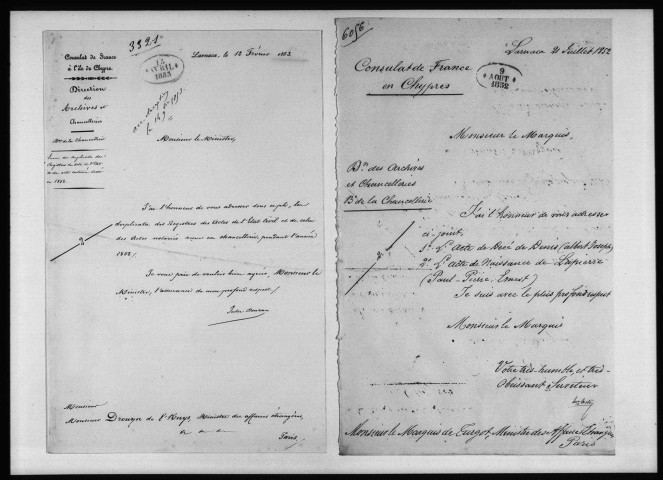 3321
Larnaca, le 12 Février 1853
Consulat de France
à l'île de Chypre
AVRIL
1853
Direction
des
Archives et
Chancelleries
Bau de la Chancellerie
Monsieur le Ministre,
J'ai l'honneur de vous adresser sous ce pli, les
duplicata des Registres des Actes de l'Etat Civil et de celui
des Actes notariés reçus en chancellerie, pendant l'année
1852.
Je vous prie de vouloir bien agréer, Monsieur le
Ministre, l'assurance de mon profond respect.
Monsieur
Monsieur Drouyn de l'Huys, Ministre des affaires étrangères,
Paris
6056
Larnaca 21 Juillet 1852
Consulat de France
en Chypres
9
AOUT
1852
Monsieur le Marquis,
Don des Archives
et Chancelleries
Bau de la Chancellerie
J'ai l'honneur de vous adresser
ci-joint.
1o L'acte de Décé de Denis (Albert Joseph)
2o L'acte de Naissance de Lapierre
(Paul-Pierre-Ernest)
Je suis avec le plus profond respect
Monsieur le Marquis
Votre très-humble, et très-
Obéissant Serviteur
Monsieur le Marquis de Turgot, Ministre des Affaires Etrangères
Paris